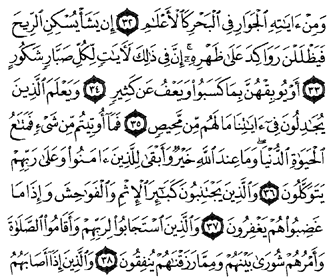 وَمِنْ ءَايَٰتِهِ ٱلْجَوَارِ فِى ٱلْبَحْرِ كَٱلْأَعْلَٰمِ ٣٢ إِن يَشَأْ يُسْكِنِ ٱلرِّيحَ
فَيَظْلَلْنَ رَوَاكِدَ عَلَىٰ ظَهْرِهِۦٓ إِنَّ فِى ذَٰلِكَ لَءَايَٰتٍ لِّكُلِّ صَبَّارٍ شَكُورٍ
٣٣ أَوْ يُوبِقْهُنَّ بِمَا كَسَبُوا۟ وَيَعْفُ عَن كَثِيرٍ ٣٤ وَيَعْلَمَ ٱلَّذِينَ
يُجَٰدِلُونَ فِىٓ ءَايَٰتِنَا مَا لَهُم مِّن مَّحِيصٍ ٣٥ فَمَآ أُوتِيتُم مِّن شَىْءٍ فَمَتَٰعُ
ٱلْحَيَوٰةِ ٱلدُّنْيَا وَمَا عِندَ ٱللَّهِ خَيْرٌ وَأَبْقَىٰ لِلَّذِينَ ءَامَنُوا۟ وَعَلَىٰ رَبِّهِمْ
يَتَوَكَّلُونَ ٣٦ وَٱلَّذِينَ يَجْتَنِبُونَ كَبَٰٓئِرَ ٱلْإِثْمِ وَٱلْفَوَٰحِشَ وَإِذَا مَا
غَضِبُوا۟ هُمْ يَغْفِرُونَ ٣٧ وَٱلَّذِينَ ٱسْتَجَابُوا۟ لِرَبِّهِمْ وَأَقَامُوا۟ ٱلصَّلَوٰةَ
وَأَمْرُهُمْ شُورَىٰ بَيْنَهُمْ وَمِمَّا رَزَقْنَٰهُمْ يُنفِقُونَ ٣٨ وَٱلَّذِينَ إِذَآ أَصَابَهُمُ